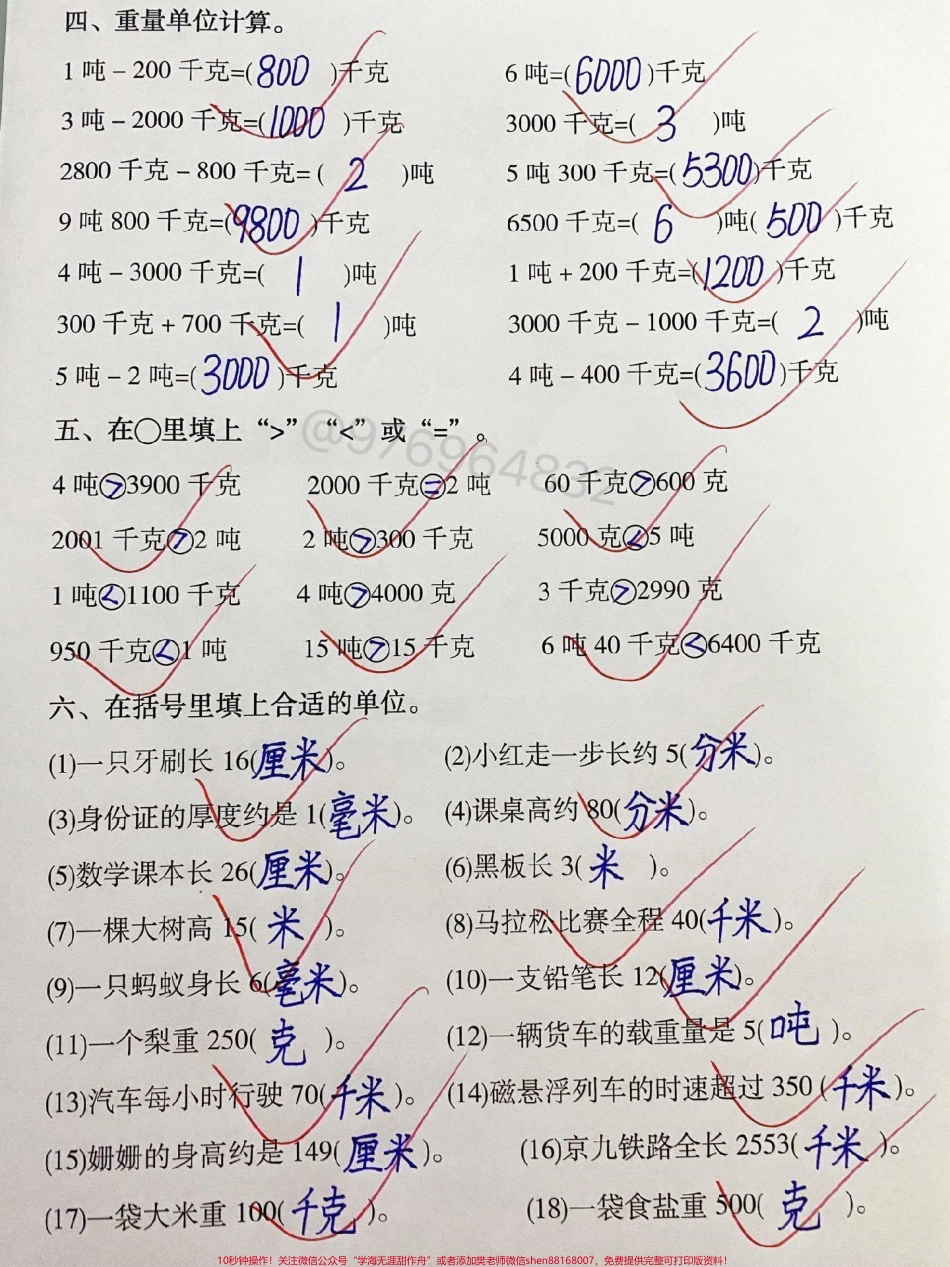 四、重量单位计算。
1 吨－200 千克=(800)千克 6 吨=(6000)千克
3 吨－2000 千克=(1000)千克 3000 千克=(3)吨
2800 千克－800 千克=(2)吨 5 吨 300 千克=(5300)千克
9 吨 800 千克=(9800)千克 6500 千克=(6)吨(500)千克
4 吨－3000 千克=(1)吨 1 吨+200 千克=(1200)千克
300 千克+700 千克=(1)吨 3000 千克－1000 千克=(2)吨
5 吨－2 吨=(3000)千克 4 吨－400 千克=(3600)千克
五、在○里填上“>”“<”或“=”。
@976964832
4 吨>3900 千克 2000 千克=2 吨 60 千克>600 克
2001 千克>2 吨 2 吨>300 千克 5000 克<5 吨
1 吨<1100 千克 4 吨>4000 克 3 千克>2990 克
950 千克<1 吨 15 吨>15 千克 6 吨 40 千克<6400 千克
六、在括号里填上合适的单位。
(1)一只牙刷长 16(厘米)。 (2)小红走一步长约 5(分米)。
(3)身份证的厚度约是 1(毫米)。 (4)课桌高约 80(分米)。
(5)数学课本长 26(厘米)。 (6)黑板长 3(米)。
(7)一棵大树高 15(米)。 (8)马拉松比赛全程 40(千米)。
(9)一只蚂蚁身长 6(毫米)。 (10)一支铅笔长 12(厘米)。
(11)一个梨重 250(克)。 (12)一辆货车的载重量是 5(吨)。
(13)汽车每小时行驶 70(千米)。 (14)磁悬浮列车的时速超过 350(千米)。
(15)姗姗的身高约是 149(厘米)。 (16)京九铁路全长 2553(千米)。
(17)一袋大米重 100(千克)。 (18)一袋食盐重 500(克)。
10秒钟操作！关注微信公众号“学海无涯甜作舟”或者添加樊老师微信shen88168007，免费提供完整可打印版资料！